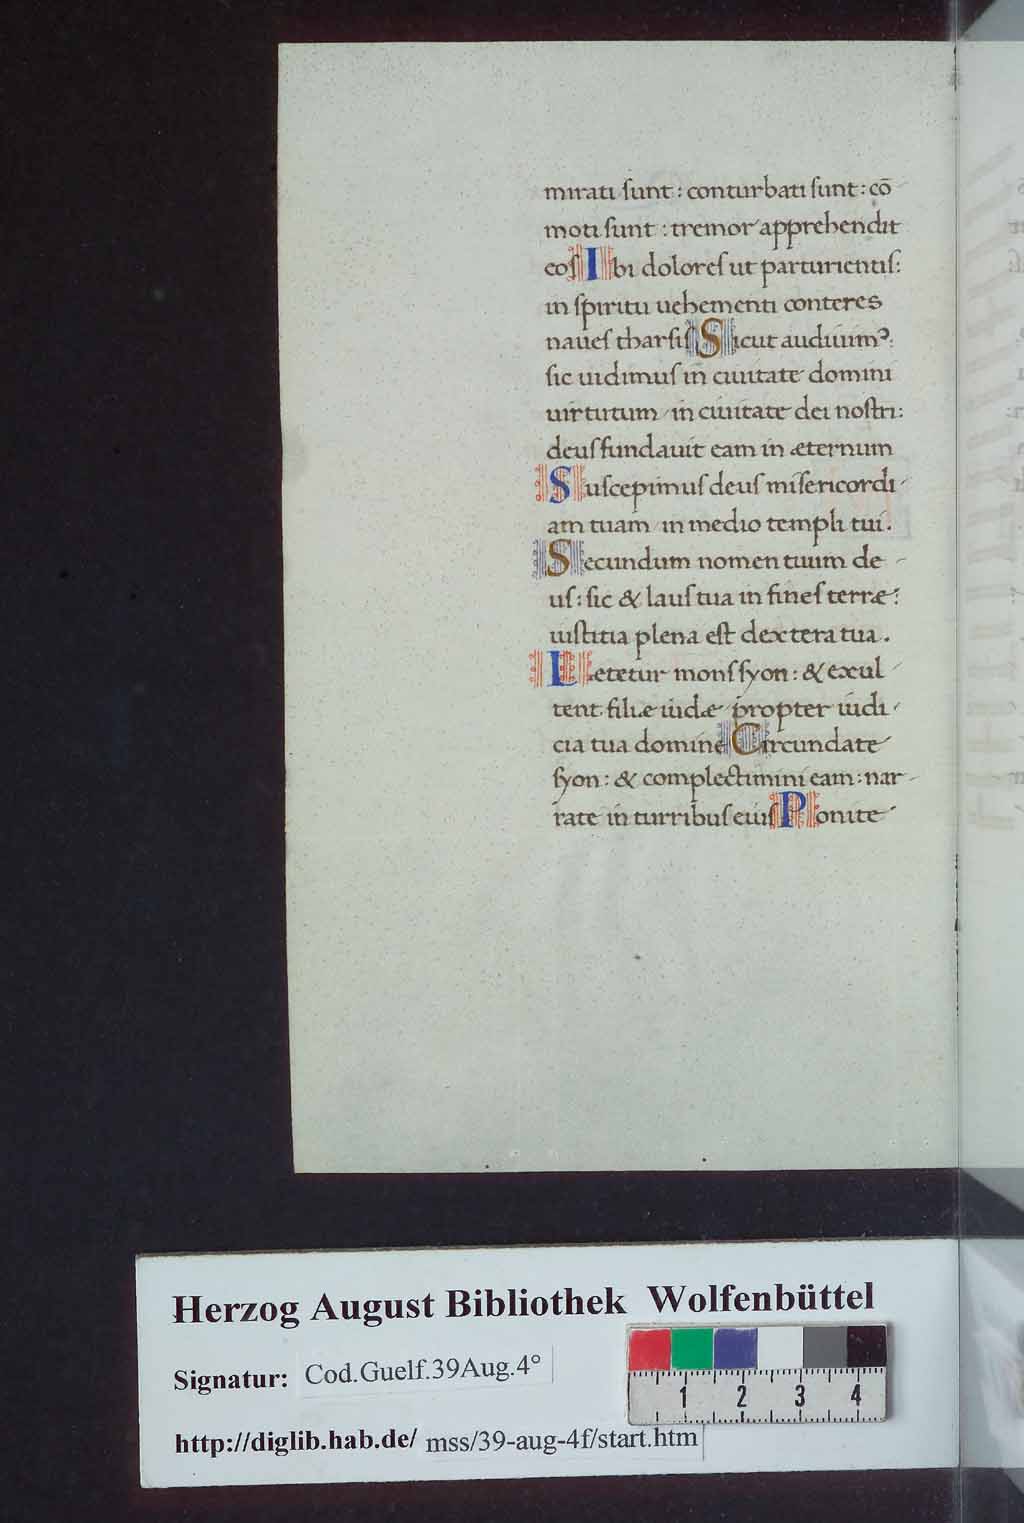 mirati sunt: conturbati sunt: cō
moti sunt: tremor apprehendit
eos Ibi dolores ut parturientis:
in spiritu uehementi conteres
naues tharsis Sicut audiuimꝰ:
sic uidimus in ciuitate domini
uirtutum / in ciuitate dei nostri:
deus fundauit eam in æternum
Suscepimus deus misericordi-
am tuam / in medio templi tui.
Secundum nomen tuum de-
us: sic & laus tua in fines terræ:
iustitia plena est dextera tua.
Letetur mons syon: & exul-
tent filiæ iudæ propter iudi-
cia tua domine Circundate
syon: & complectimini eam: nar-
rate in turribus eius Ponite
Herzog August Bibliothek Wolfenbüttel
Signatur: Cod.Guelf.39Aug.4°
1 2 3 4
http://diglib.hab.de/ mss/39-aug-4f/start.htm